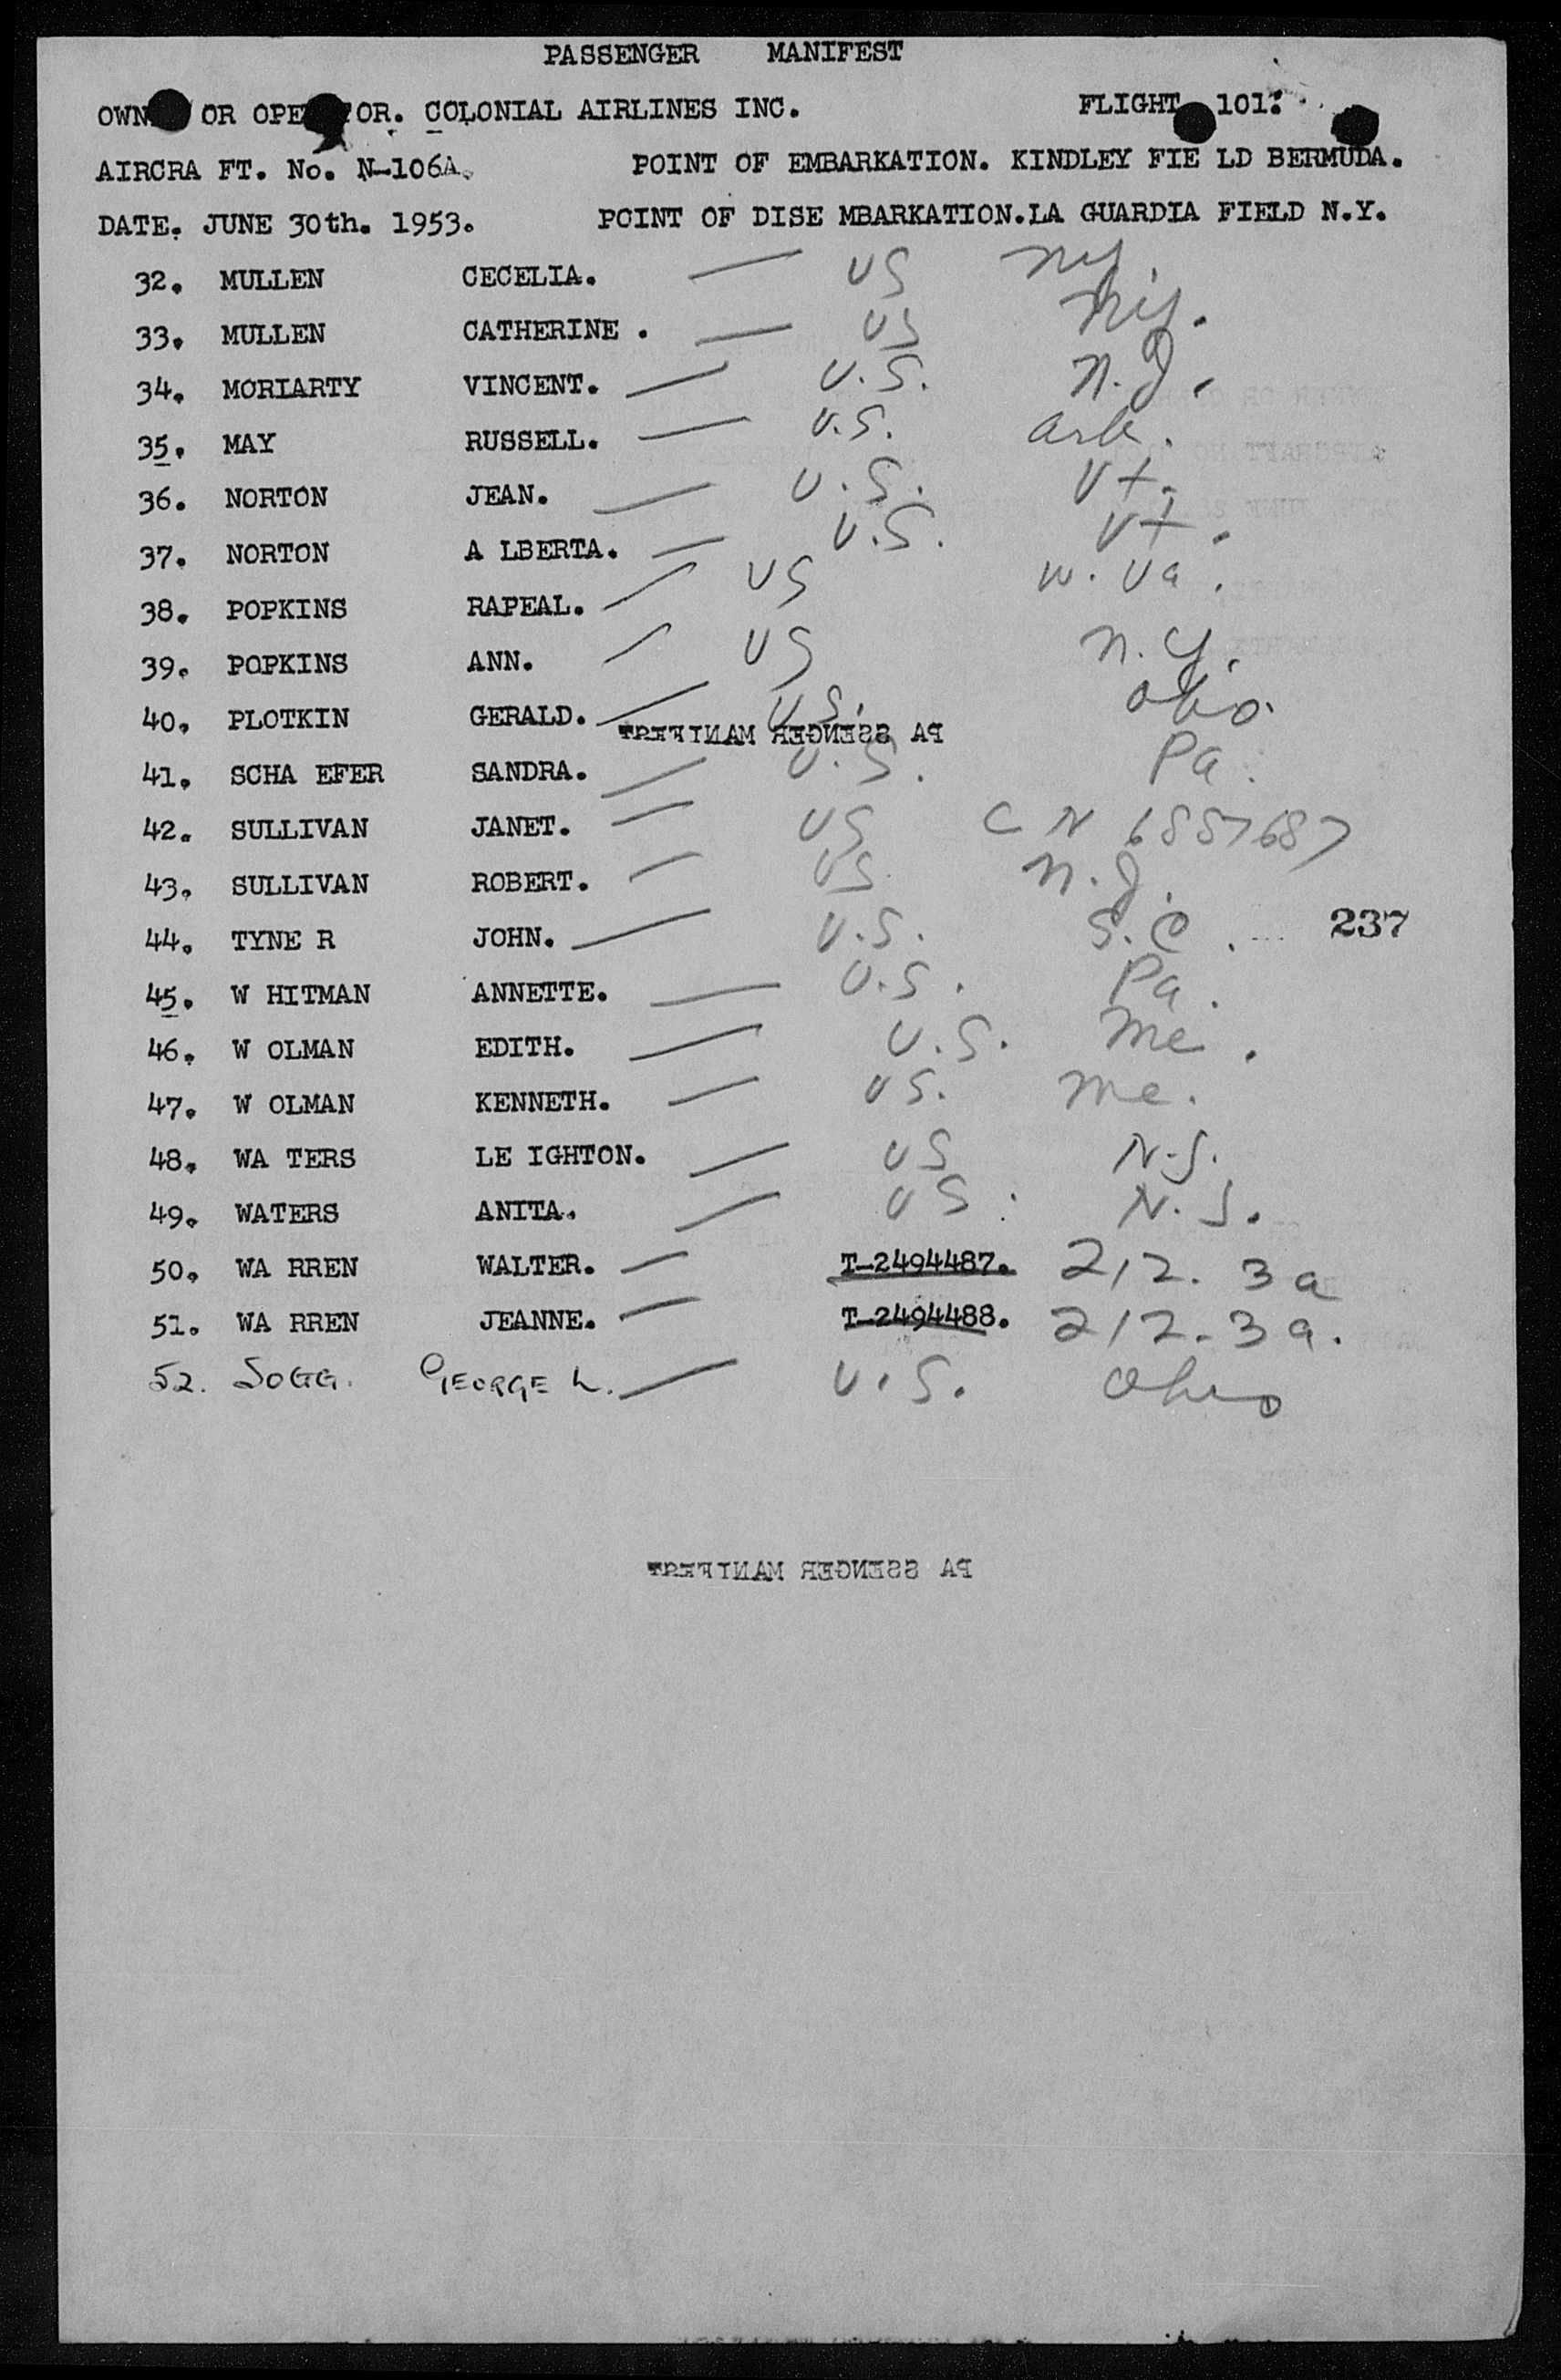 PASSENGER MANIFEST
OWN OR OPE OR. COLONIAL AIRLINES INC. FLIGHT 101.
AIRCRA FT. No. N-106A. POINT OF EMBARKATION. KINDLEY FIE LD BERMUDA.
DATE. JUNE 30th. 1953. POINT OF DISE MBARKATION.LA GUARDIA FIELD N.Y.
32. MULLEN CECELIA. — US NY.
33. MULLEN CATHERINE . — US NY.
34. MORIARTY VINCENT. — U.S. N.J.
35. MAY RUSSELL. — U.S. Ark.
36. NORTON JEAN. — U.S. Vt.
37. NORTON A LBERTA. — U.S. Vt.
38. POPKINS RAPEAL. — US W. Va.
39. POPKINS ANN. — US N.Y.
40. PLOTKIN GERALD. — US. Ohio
PA SSENGER MANIFEST
41. SCHA EFER SANDRA. — U.S. Pa.
42. SULLIVAN JANET. — US C N 6887687
43. SULLIVAN ROBERT. — US. N.J.
44. TYNE R JOHN. — U.S. S.C. 237
45. W HITMAN ANNETTE. — U.S. Pa.
46. W OLMAN EDITH. — U.S. Me.
47. W OLMAN KENNETH. — US. Me.
48. WA TERS LE IGHTON. — US N.J.
49. WATERS ANITA. — US N.J.
50. WA RREN WALTER. — T-2494487. 212.3a
51. WA RREN JEANNE. — T-2494488. 212.3a.
52. SOGG. GEORGE L. — U.S. Ohio
PA SSENGER MANIFEST